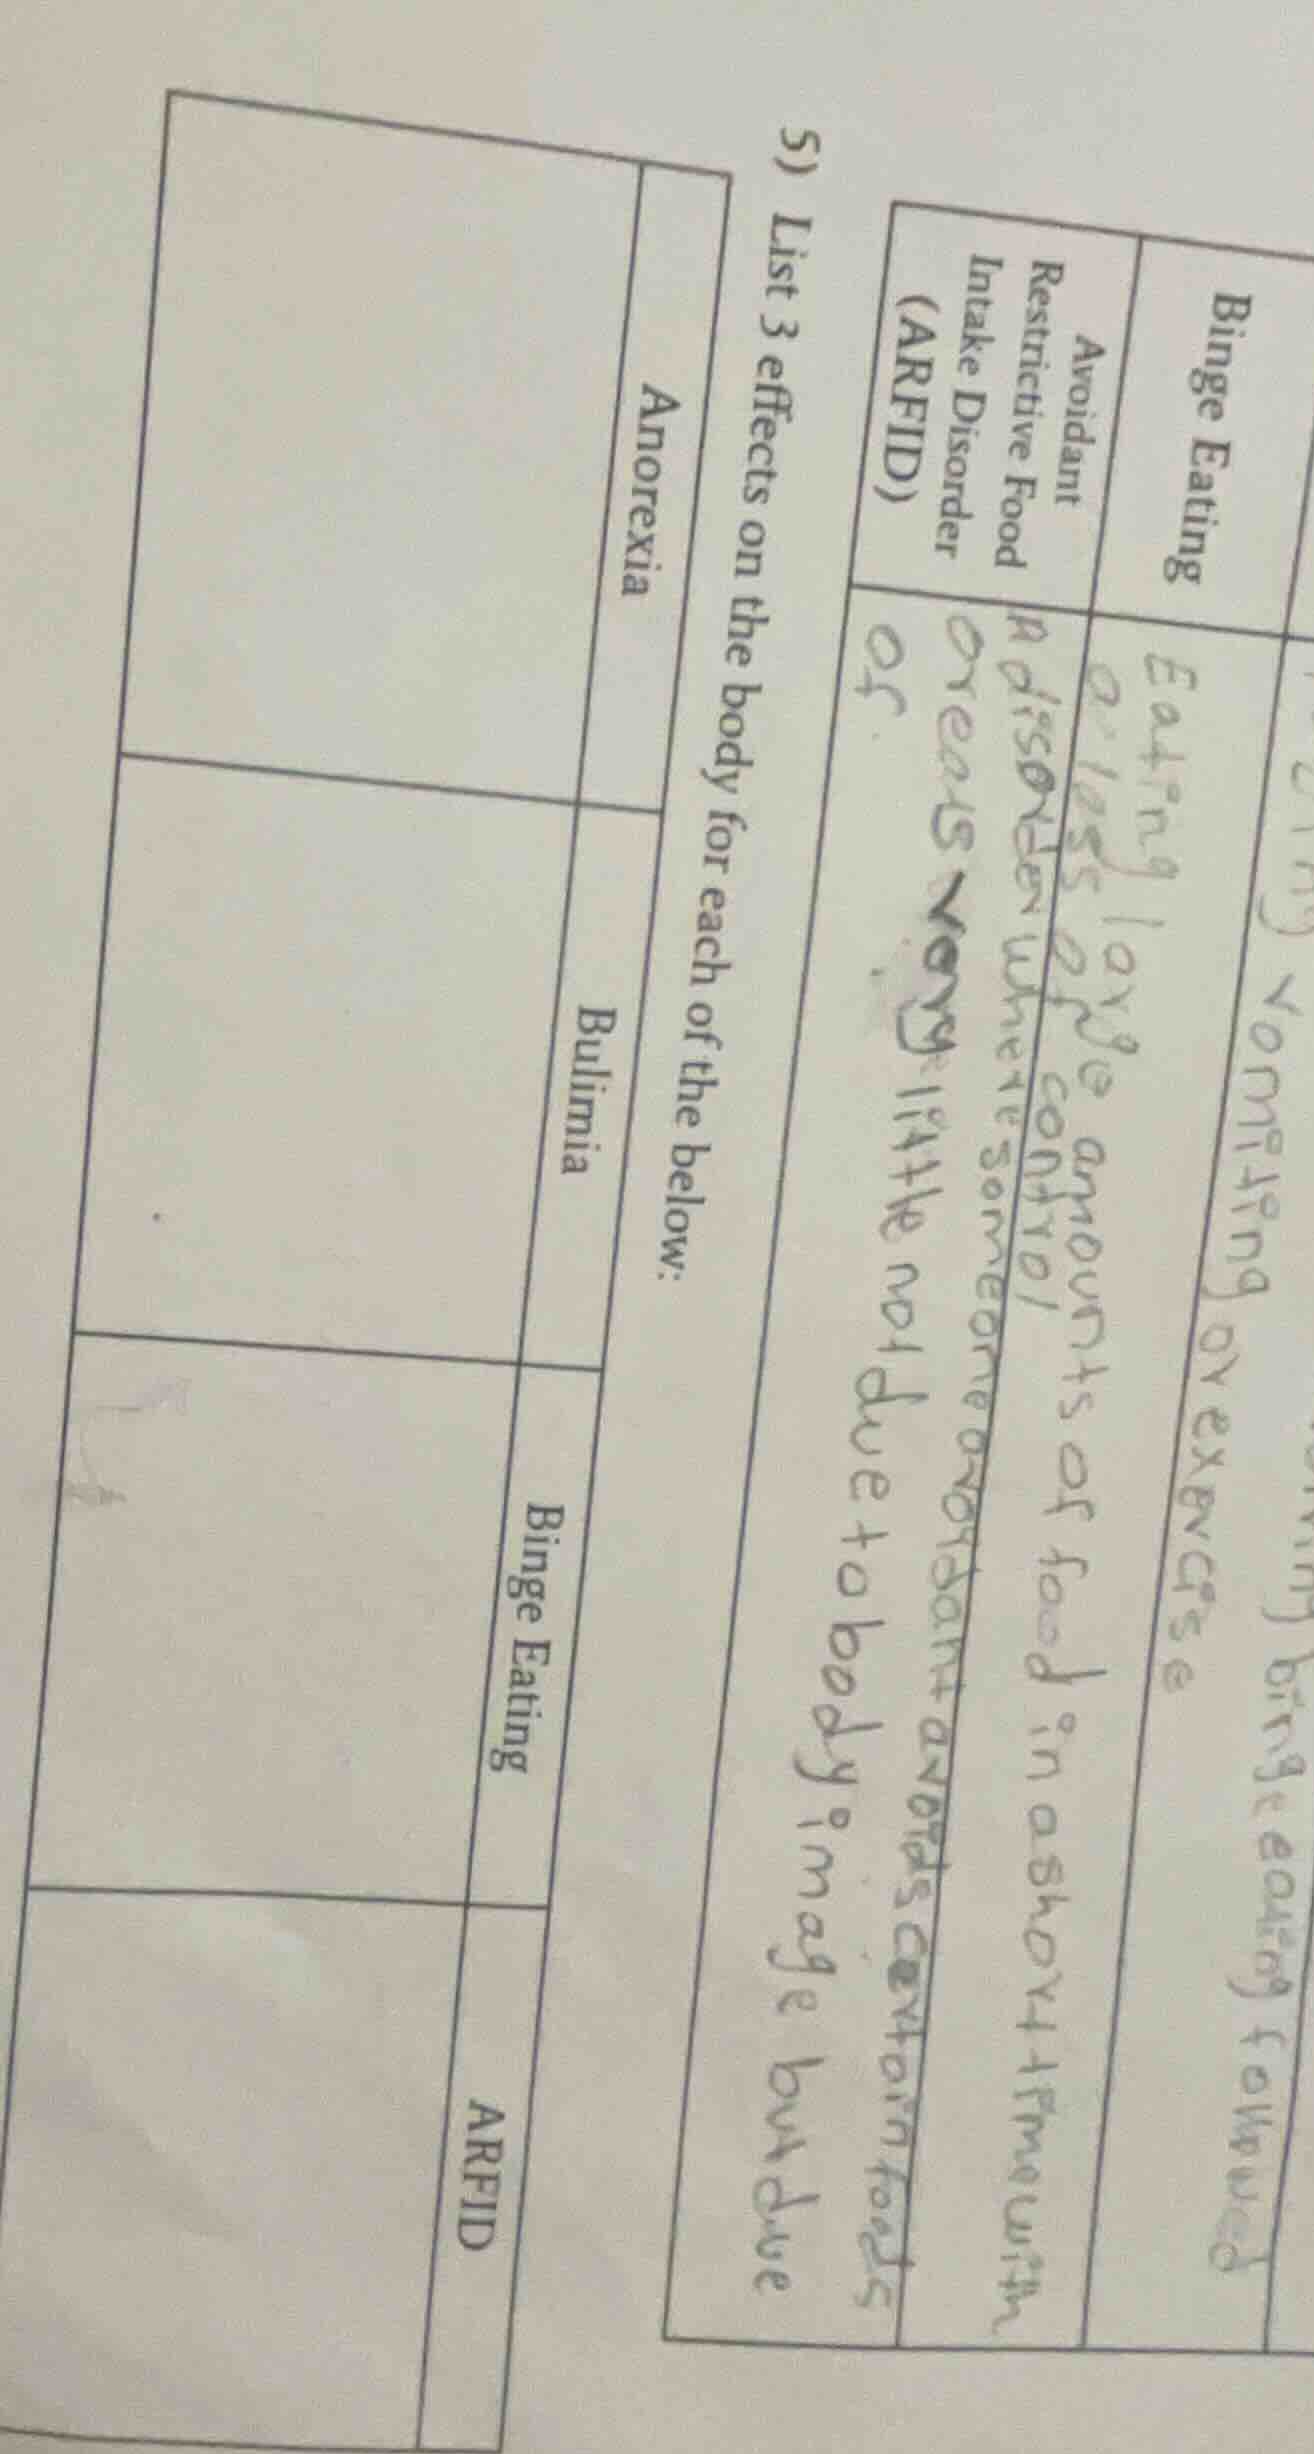 by vomiting or exercise
binge eating followed
Binge Eating
Eating large amounts of food in a short time with
a loss of control
Avoidant
Restrictive Food
Intake Disorder
(ARFID)
A disorder where someone avoidant avoids certain foods
or eats very little not due to body image but due
of
5) List 3 effects on the body for each of the below:
Anorexia
Bulimia
Binge Eating
ARFID